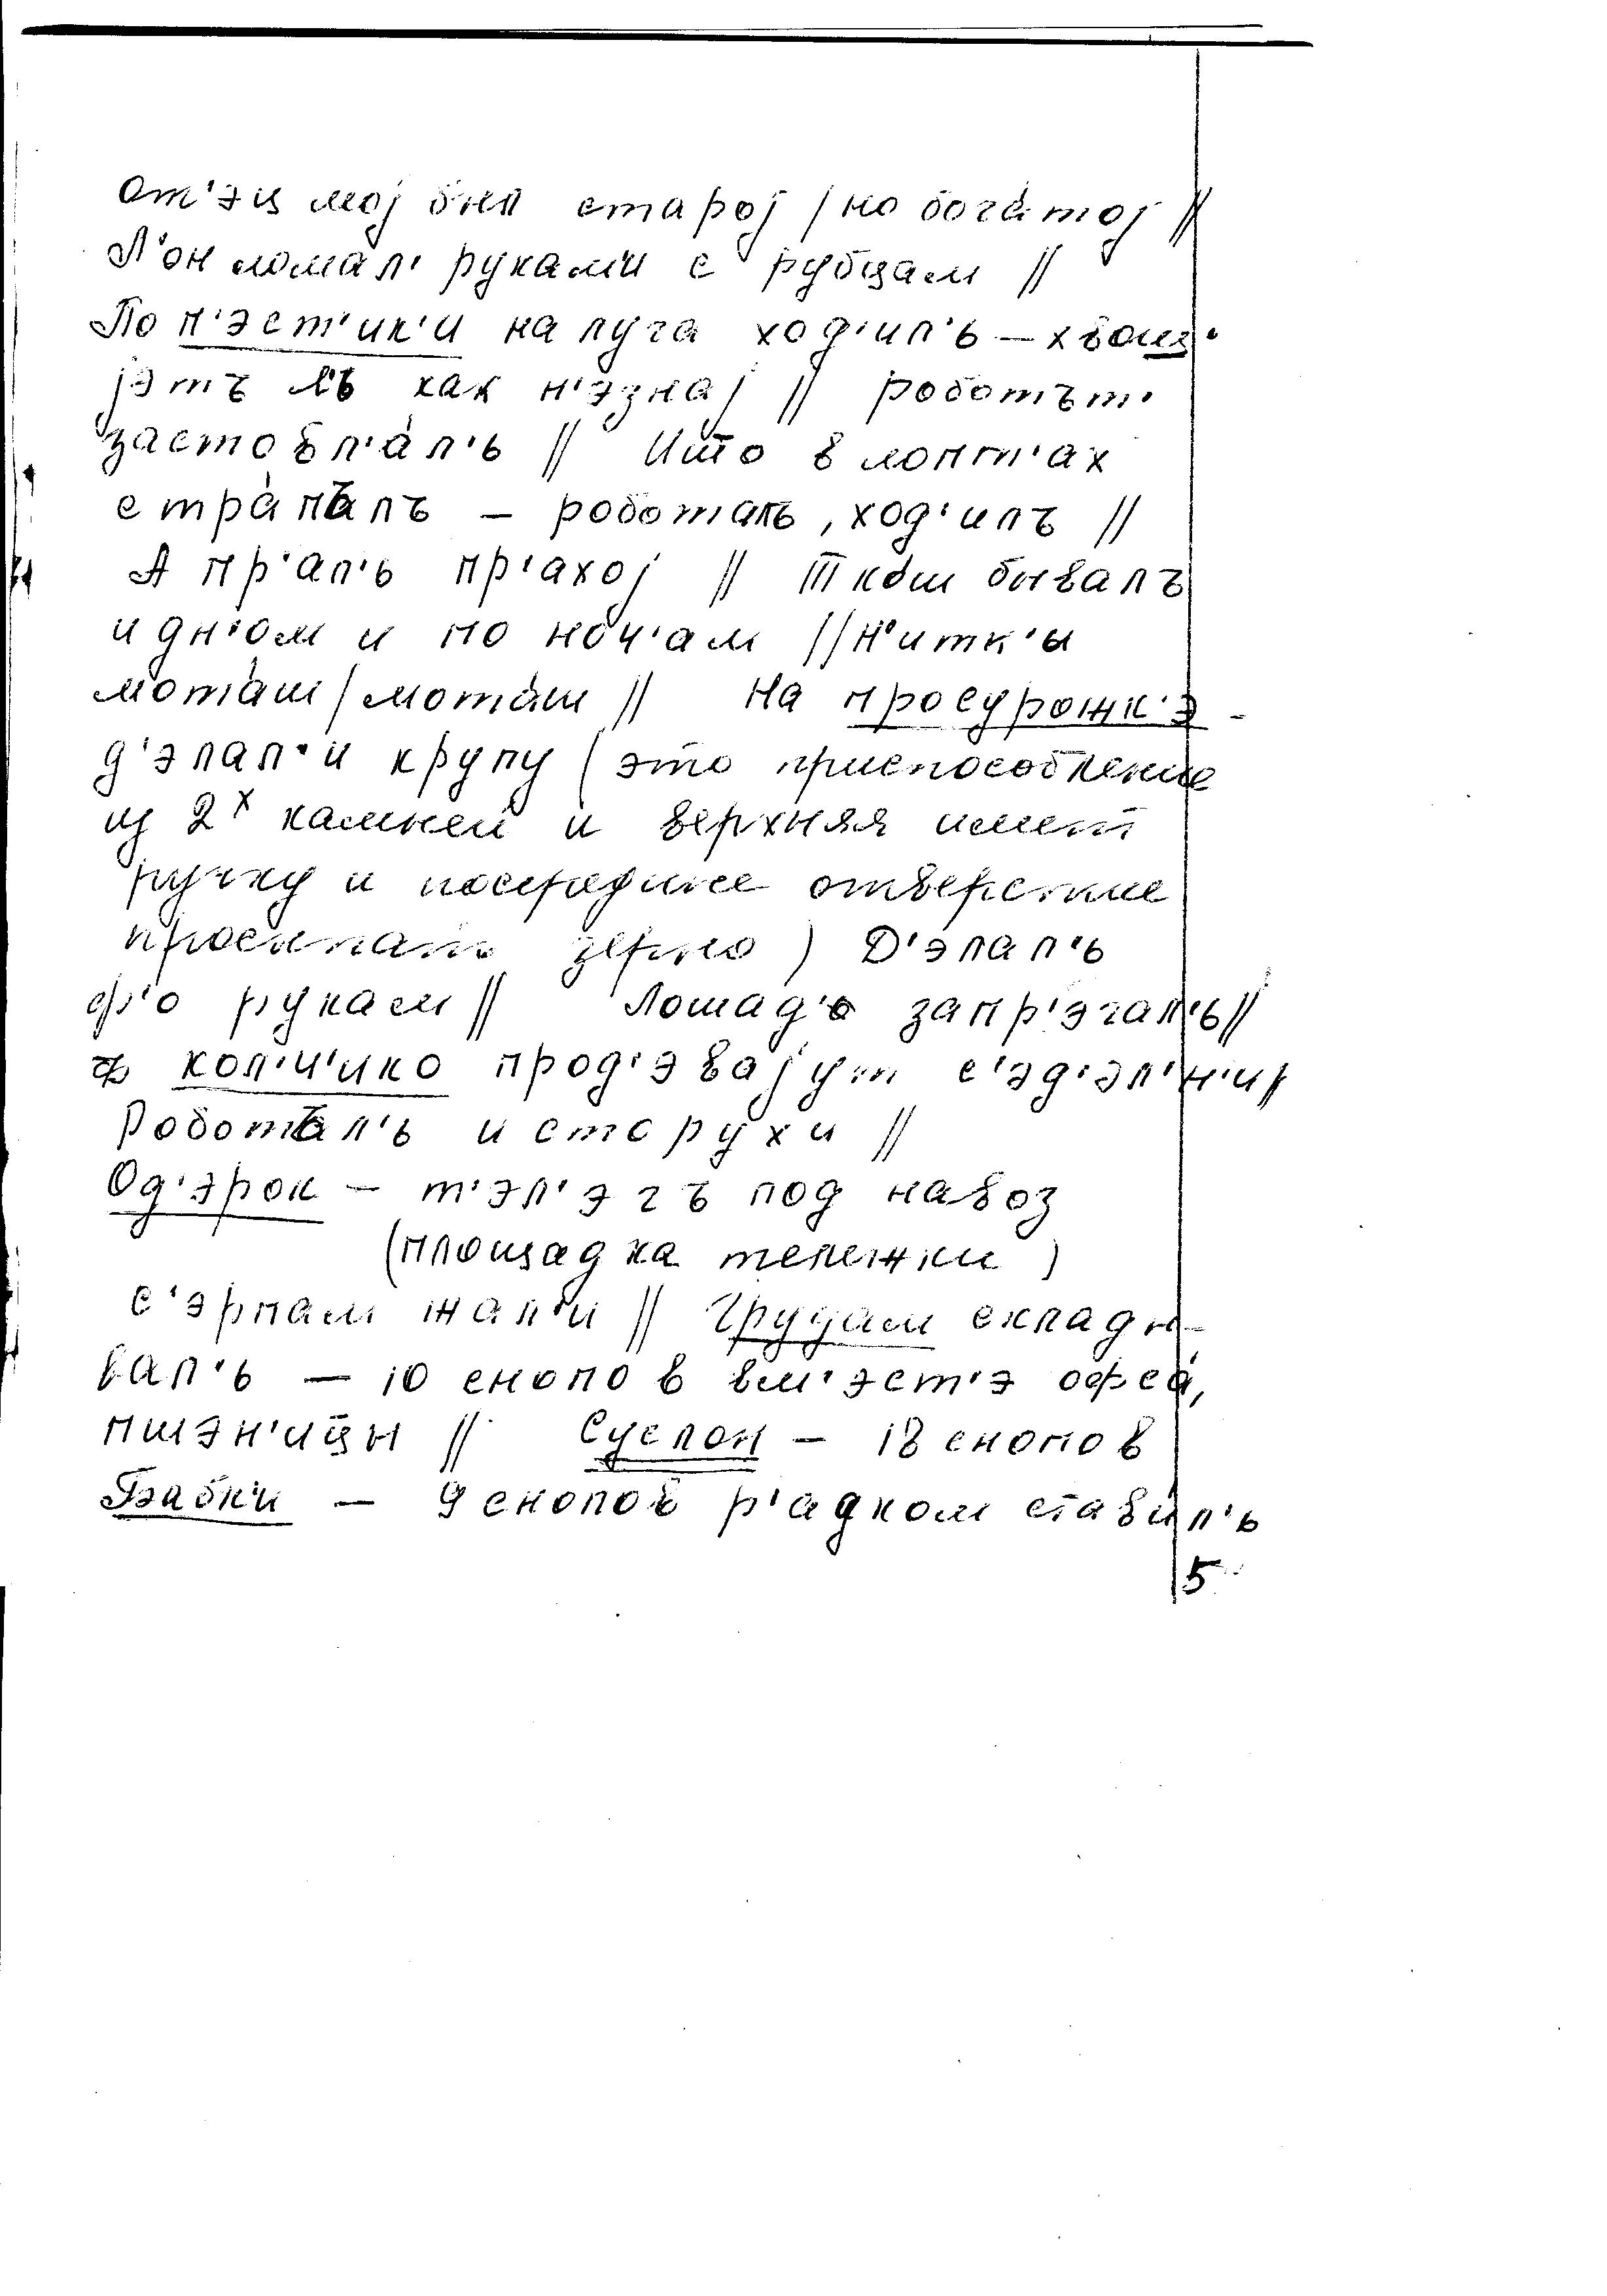 От'эц мој был старој / но бога́тој //
Л'он ломал' рукам'и с рубцам //
По п'эст'ик'и на луга ход'ил'ь – хвощ'
јэтъ л'ь как н'эзнај // роботът'
застовл'а́л'ь // Што в лопт'ах
стра́пълъ – робо́талъ, ход'илъ //
А пр'ал'ь пр'ахој // Ткош бывалъ
и дн'ом и по ноч'ам // Н'итк'ы
мота́ш / мота́ш // На просурожк'э -
д'элал'и крупу (это приспособление
из 2х камней и верхняя имеет
ручку и посередине отверстие
просыпать зерно) Д'элал'ь
фс'о рукам // Лошад'о запр'эгал'ь //
ф кол'ч'ико прод'эвајут с'эд'эл'н'ик
Роботъл'ь и сторухи //
Од'эрок – т'эл'эгъ под навоз
(площадка тележки)
С'эрпам жал'и // Грудам склады-
вал'ь – 10 снопов вм'эст'э офса́,
пшэн'ицы // Суслон – 18 снопов
Бабк'и – 9 снопов р'адком ставил'ь
5